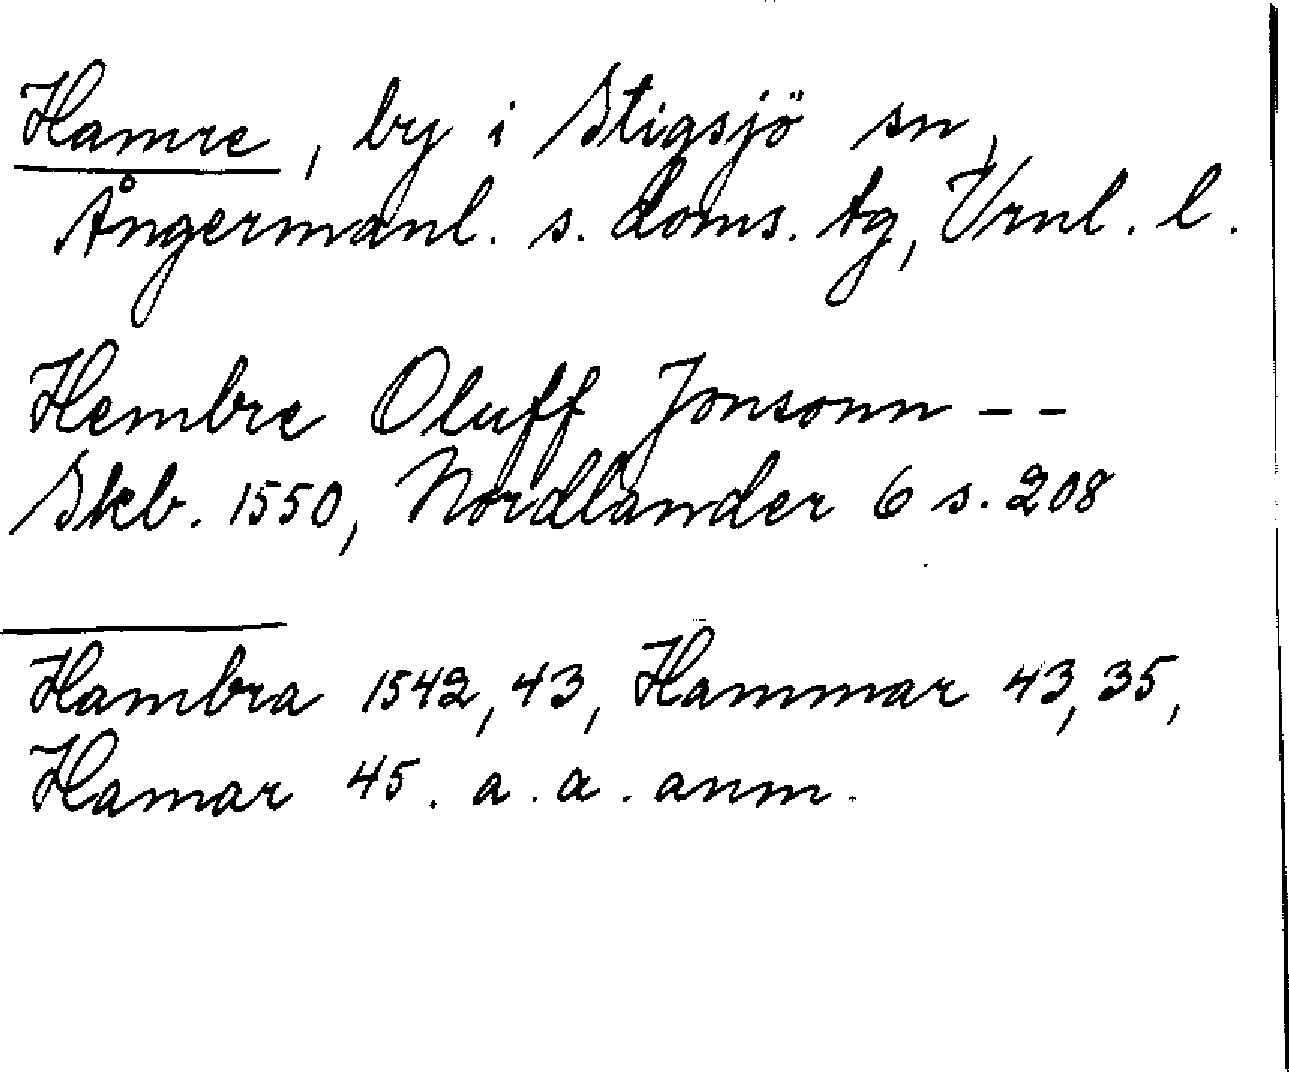 Hamre, by i Stigsjö sn,
Ångermanl. s. doms. tg, Vrnl. l.
Hembre Oluff Jonsonn - -
Skb. 1550, Nordlander 6 s. 208
Hambra 1542, 43, Hammar 43, 35,
Hamar 45. a. a. anm.